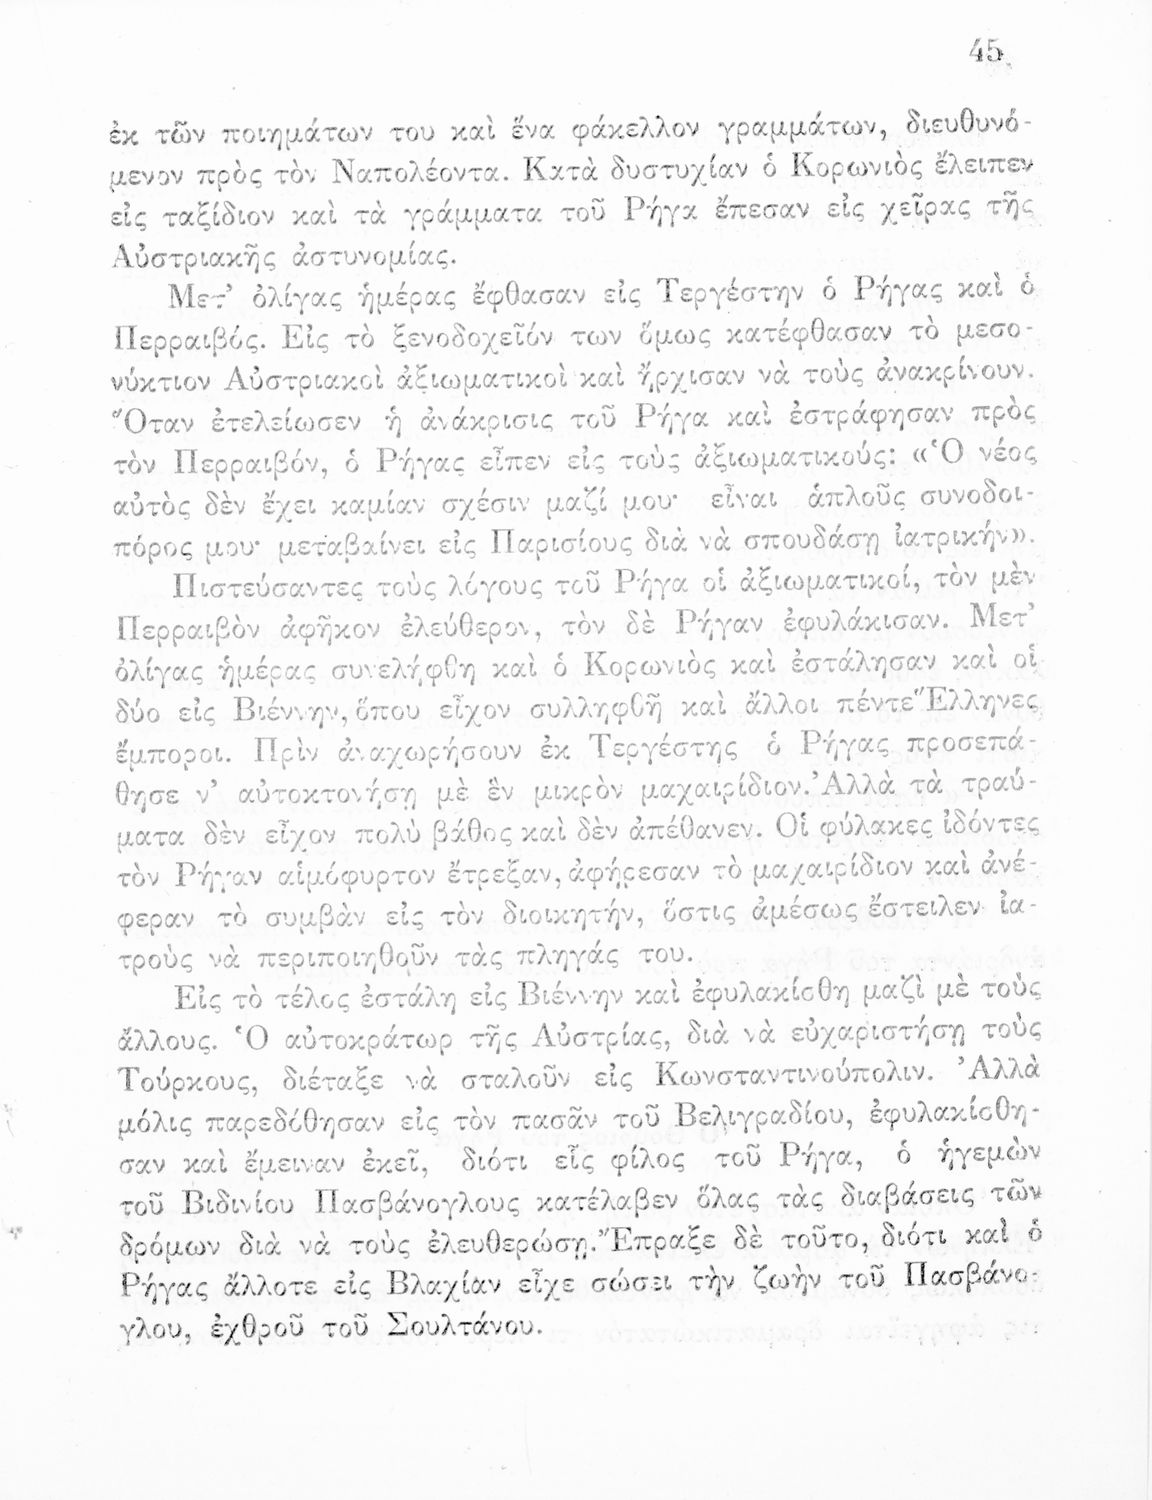 45
ἐκ τῶν ποιημάτων του καὶ ἕνα φάκελλον γραμμάτων, διευθυνό-
μενον πρὸς τὸν Ναπολέοντα. Κατὰ δυστυχίαν ὁ Κορωνιὸς ἔλειπεν
εἰς ταξίδιον καὶ τὰ γράμματα τοῦ Ρήγα ἔπεσαν εἰς χεῖρας τῆς
Αὐστριακῆς ἀστυνομίας.
Μετ’ ὀλίγας ἡμέρας ἔφθασαν εἰς Τεργέστην ὁ Ρήγας καὶ ὁ
Περραιβός. Εἰς τὸ ξενοδοχεῖόν των ὅμως κατέφθασαν τὸ μεσο-
νύκτιον Αὐστριακοὶ ἀξιωματικοὶ καὶ ἤρχισαν νὰ τοὺς ἀνακρίνουν.
Ὅταν ἐτελείωσεν ἡ ἀνάκρισις τοῦ Ρήγα καὶ ἐστράφησαν πρὸς
τὸν Περραιβόν, ὁ Ρήγας εἶπεν εἰς τοὺς ἀξιωματικούς: «Ὁ νέος
αὐτὸς δὲν ἔχει καμίαν σχέσιν μαζί μου· εἶναι ἁπλοῦς συνοδοι-
πόρος μου· μεταβαίνει εἰς Παρισίους διὰ νὰ σπουδάσῃ ἰατρικήν».
Πιστεύσαντες τοὺς λόγους τοῦ Ρήγα οἱ ἀξιωματικοί, τὸν μὲν
Περραιβὸν ἀφῆκον ἐλεύθερον, τὸν δὲ Ρήγαν ἐφυλάκισαν. Μετ’
ὀλίγας ἡμέρας συνελήφθη καὶ ὁ Κορωνιὸς καὶ ἐστάλησαν καὶ οἱ
δύο εἰς Βιέννην, ὅπου εἶχον συλληφθῆ καὶ ἄλλοι πέντε Ἕλληνες
ἔμποροι. Πρὶν ἀναχωρήσουν ἐκ Τεργέστης ὁ Ρήγας προσεπά-
θησε ν’ αὐτοκτονήσῃ μὲ ἓν μικρὸν μαχαιρίδιον. Ἀλλὰ τὰ τραύ-
ματα δὲν εἶχον πολὺ βάθος καὶ δὲν ἀπέθανεν. Οἱ φύλακες ἰδόντες
τὸν Ρήγαν αἱμόφυρτον ἔτρεξαν, ἀφήρεσαν τὸ μαχαιρίδιον καὶ ἀνέ-
φεραν τὸ συμβὰν εἰς τὸν διοικητήν, ὅστις ἀμέσως ἔστειλεν ἰα-
τροὺς νὰ περιποιηθοῦν τὰς πληγάς του.
Εἰς τὸ τέλος ἐστάλη εἰς Βιέννην καὶ ἐφυλακίσθη μαζὶ μὲ τοὺς
ἄλλους. Ὁ αὐτοκράτωρ τῆς Αὐστρίας, διὰ νὰ εὐχαριστήσῃ τοὺς
Τούρκους, διέταξε νὰ σταλοῦν εἰς Κωνσταντινούπολιν. Ἀλλὰ
μόλις παρεδόθησαν εἰς τὸν πασᾶν τοῦ Βελιγραδίου, ἐφυλακίσθη-
σαν καὶ ἔμειναν ἐκεῖ, διότι εἷς φίλος τοῦ Ρήγα, ὁ ἡγεμὼν
τοῦ Βιδινίου Πασβάνογλους κατέλαβεν ὅλας τὰς διαβάσεις τῶν
δρόμων διὰ νὰ τοὺς ἐλευθερώσῃ. Ἔπραξε δὲ τοῦτο, διότι καὶ ὁ
Ρήγας ἄλλοτε εἰς Βλαχίαν εἶχε σώσει τὴν ζωὴν τοῦ Πασβάνο-
γλου, ἐχθροῦ τοῦ Σουλτάνου.